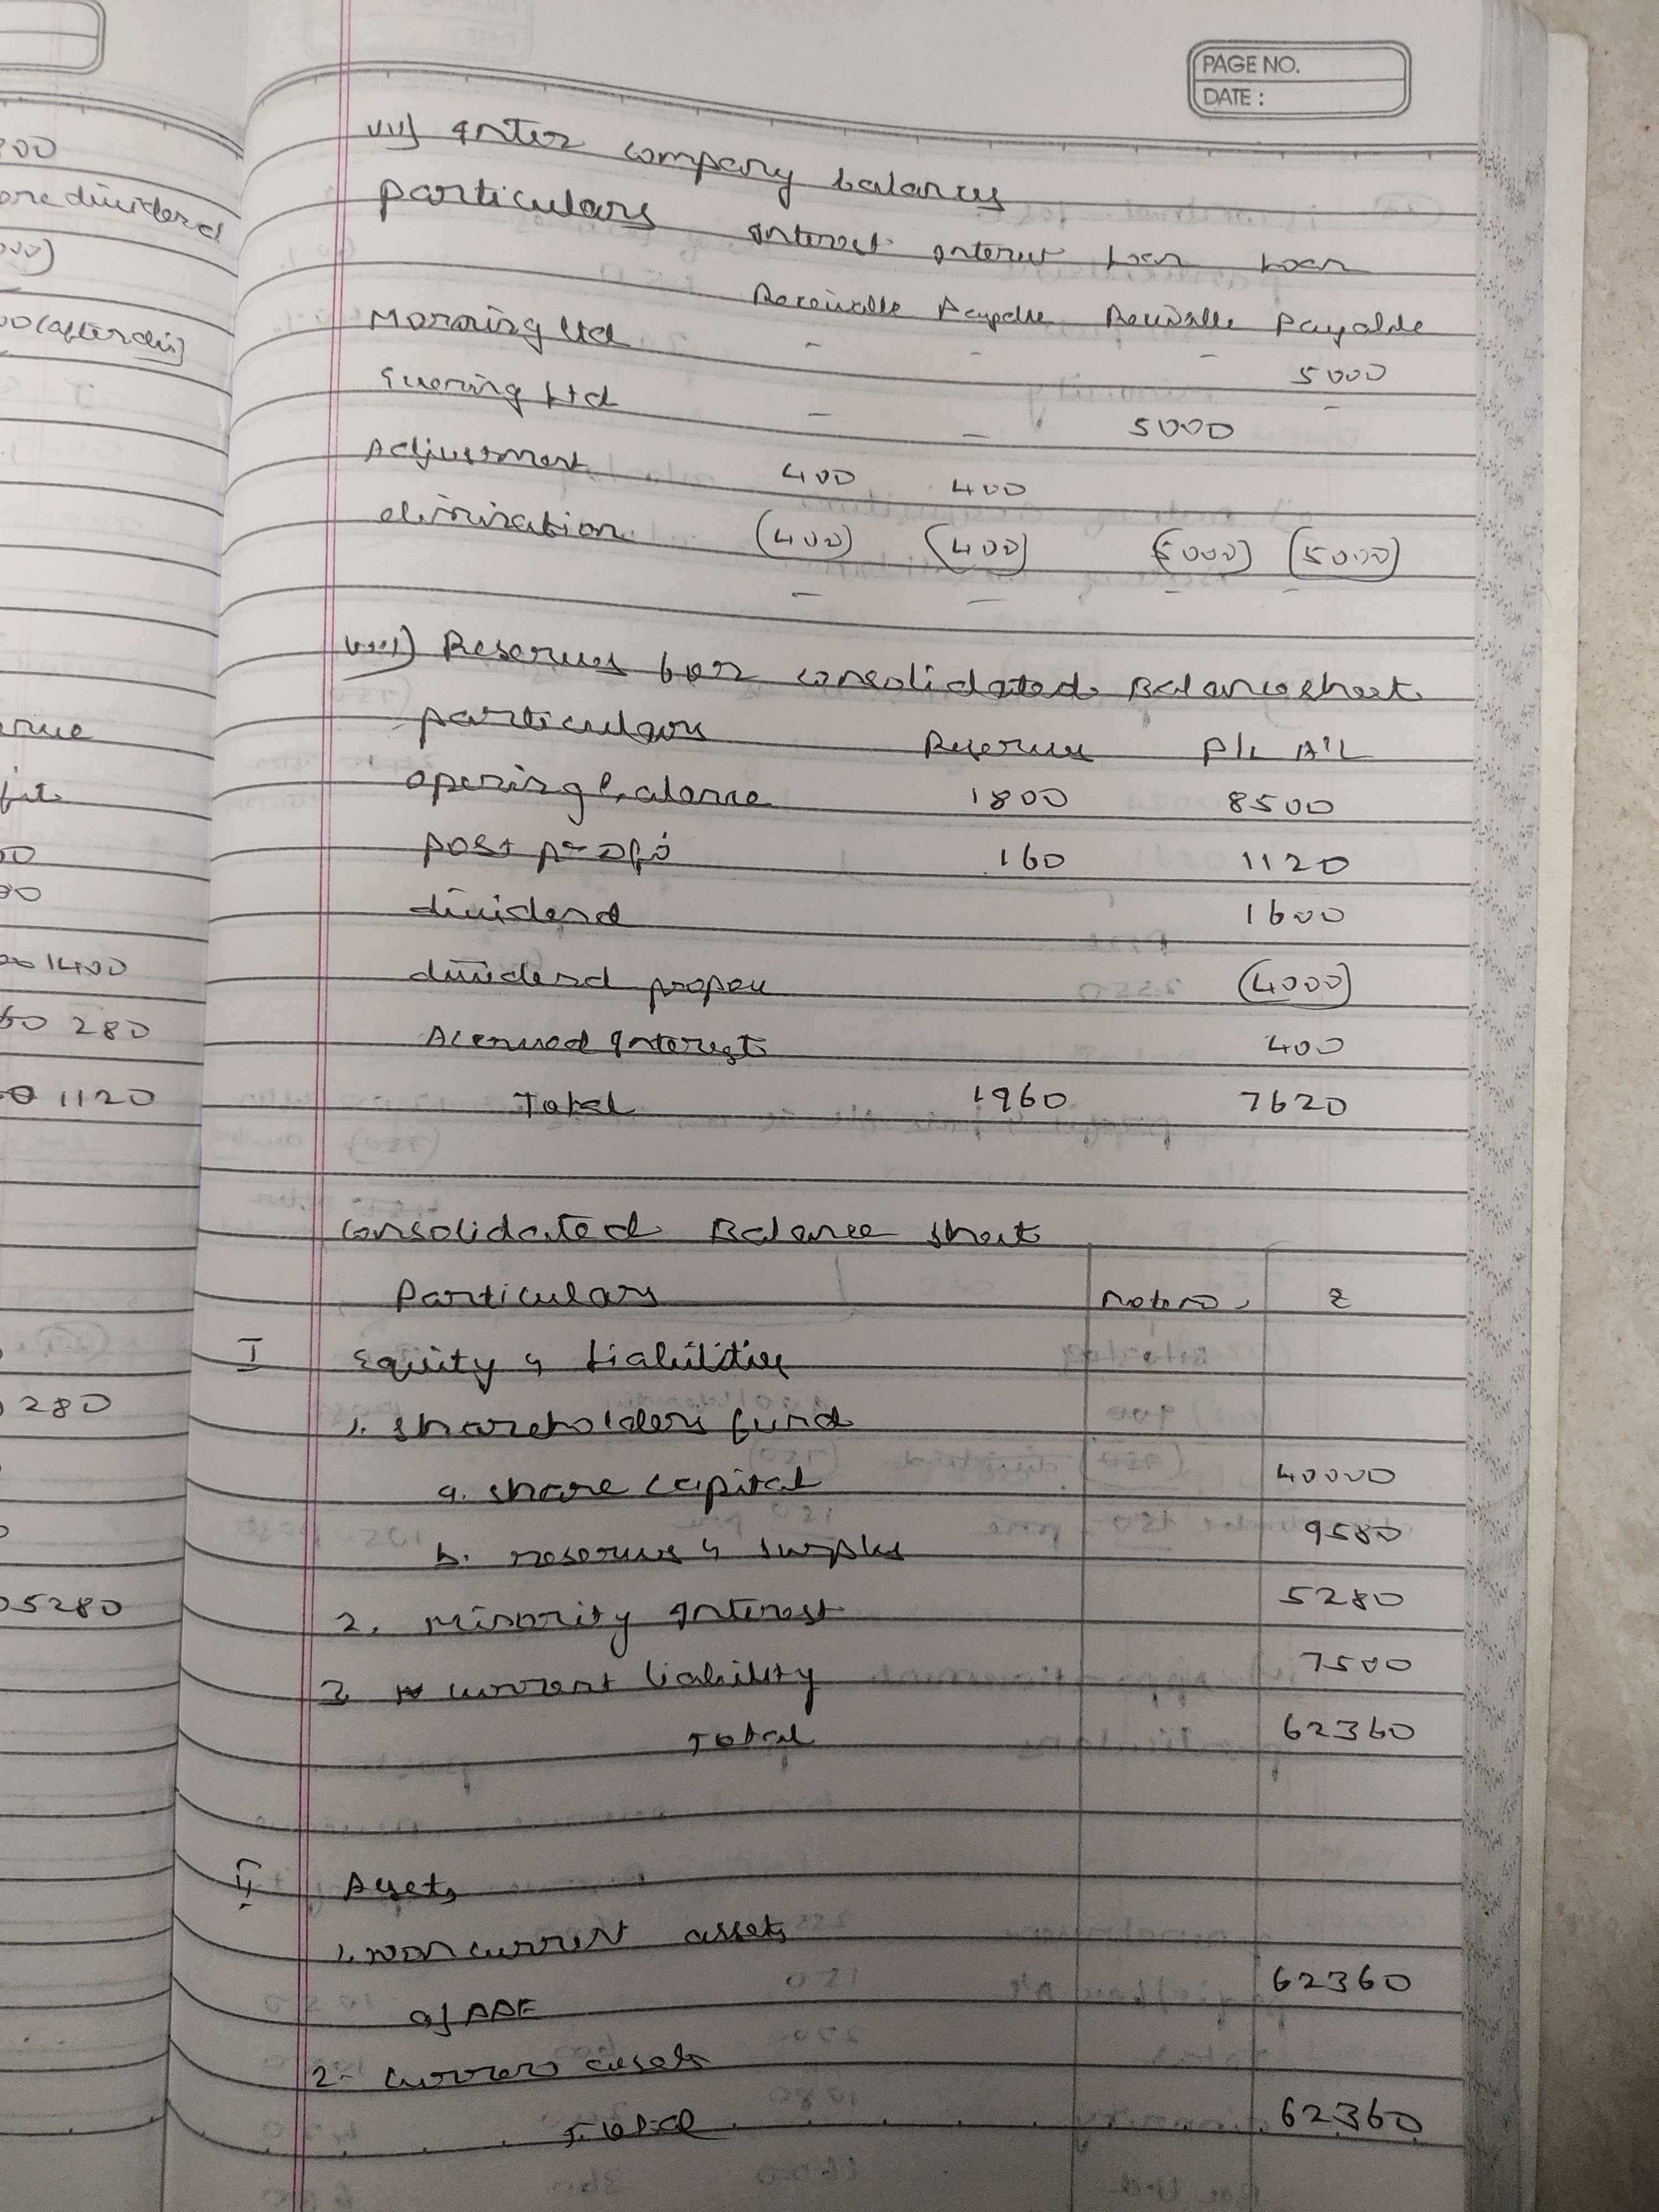 PAGE NO.
DATE :
vii) Inter company balances
particulars Interest Interest Loan Loan
Receivable Payable Receivable Payable
Morning Ltd - - - 5000
Evening Ltd - - 5000 -
Adjustment 400 400
elimination (400) (400) (5000) (5000)
- - - -
viii) Reserves for consolidated Balance sheet
particulars Reserves P/L A/c
opening balance 1800 8500
post profi 160 1120
dividend 1600
dividend propou (4000)
Accrued Interest 400
Total 1960 7620
Consolidated Balance sheet
Particulars Note no. ₹
I Equity & Liabilities
1. Shareholders fund
a. share capital 40000
b. reserves & surplus 9580
2. Minority Interest 5280
3 current liability 7500
Total 62360
II Assets
1. non current assets
a) PPE 62360
2. Current assets
Total 62360
00
ore dividend
00)
00 (after div)
00
1400
60 280
1120
280
05280